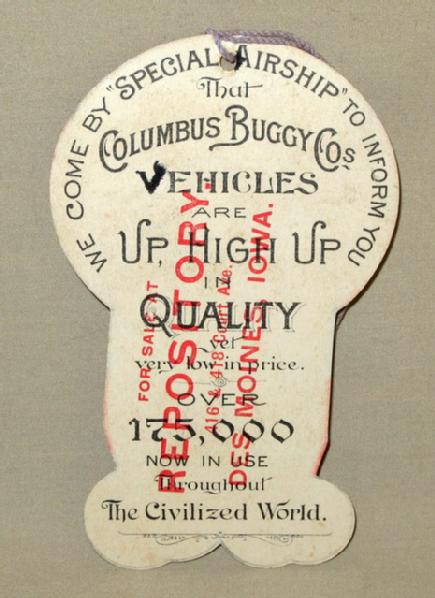 WE COME BY "SPECIAL AIRSHIP" TO INFORM YOU
That
COLUMBUS BUGGY CO'S,
VEHICLES
ARE
UP, HIGH UP
IN
QUALITY
yet
very low in price.
OVER
175,000
NOW IN USE
Throughout
The Civilized World.
FOR SALE AT
REPOSITORY.
416 & 418 Court Ave.
DES MOINES, IOWA.